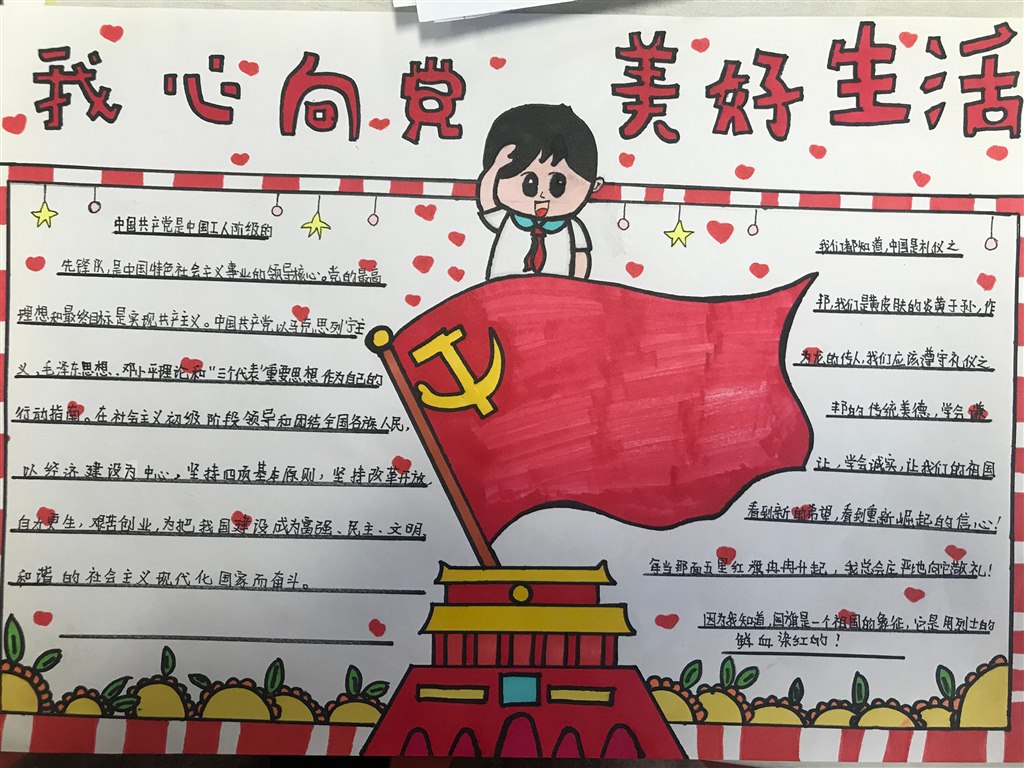 我心向党 美好生活
中国共产党是中国工人阶级的
先锋队,是中国特色社会主义事业的领导核心。党的最高
理想和最终目标是实现共产主义。中国共产党以马克思列宁主
义、毛泽东思想、邓小平理论和"三个代表"重要思想作为自己的
行动指南。在社会主义初级阶段领导和团结全国各族人民,
以经济建设为中心,坚持四项基本原则,坚持改革开放,
自力更生,艰苦创业,为把我国建设成为富强、民主、文明、
和谐的社会主义现代化国家而奋斗。
我们都知道,中国是礼仪之
邦,我们是黄皮肤的炎黄子孙,作
为龙的传人,我们应该遵守礼仪之
邦的传统美德,学会谦
让,学会诚实,让我们的祖国
看到新的希望,看到重新崛起的信心!
每当那面五星红旗冉冉升起,我总会庄严地向它敬礼!
因为我知道,国旗是一个祖国的象征,它是用烈士的
鲜血染红的?